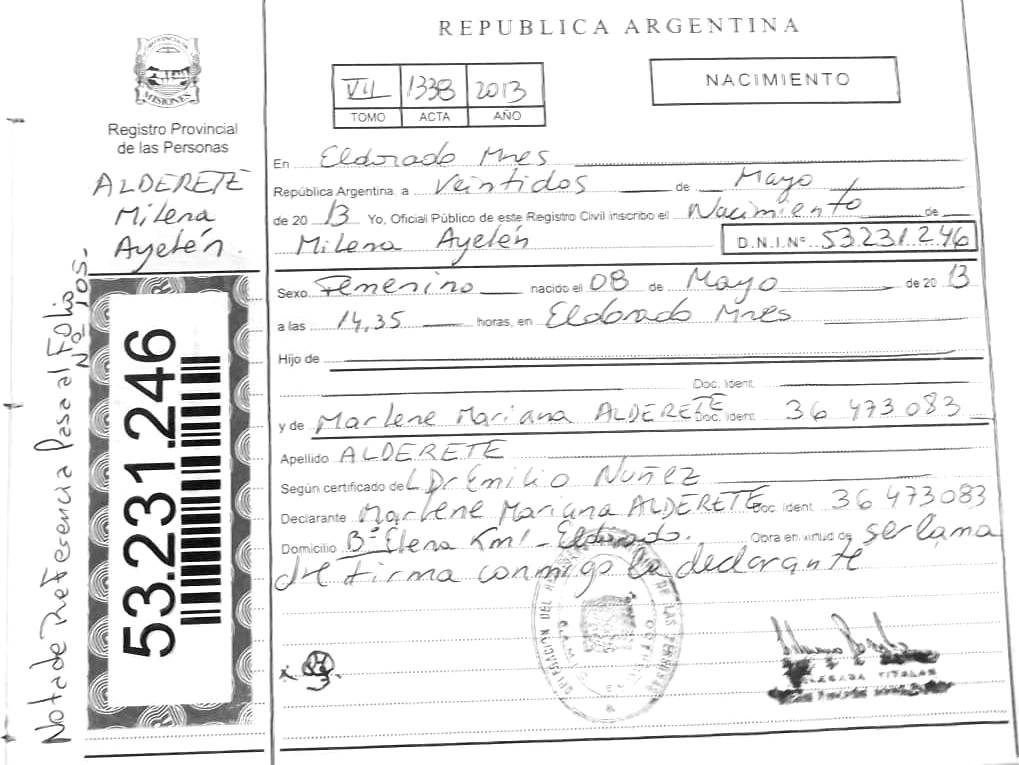 REPUBLICA ARGENTINA
PROVINCIA DE
MISIONES
Registro Provincial
de las Personas
ALDERETE
Milena
Ayelén.
Nota de Referencia Pasa al Folio
Nº 105.
53.231.246
VII 1338 2013
TOMO ACTA AÑO
NACIMIENTO
En Eldorado Mnes
República Argentina, a Veintidos de Mayo
de 2013 Yo, Oficial Público de este Registro Civil inscribo el Nacimiento de
Milena Ayelén D.N.I.Nº 53.231.246
Sexo Femenino nacido el 08 de Mayo de 2013
a las 14,35 horas, en Eldorado Mnes
Hijo de
Doc. Ident.
y de Marlene Mariana ALDERETE Doc. Ident. 36 473 083
Apellido ALDERETE
Según certificado de L Dr Emilio Nuñez
Declarante Marlene Mariana ALDERETE Doc. Ident. 36 473083
Domicilio Bº Elena Km1 - Eldorado. Obra en virtud de ser la ma
dre firma conmigo la declarante
DELEGADA TITULAR